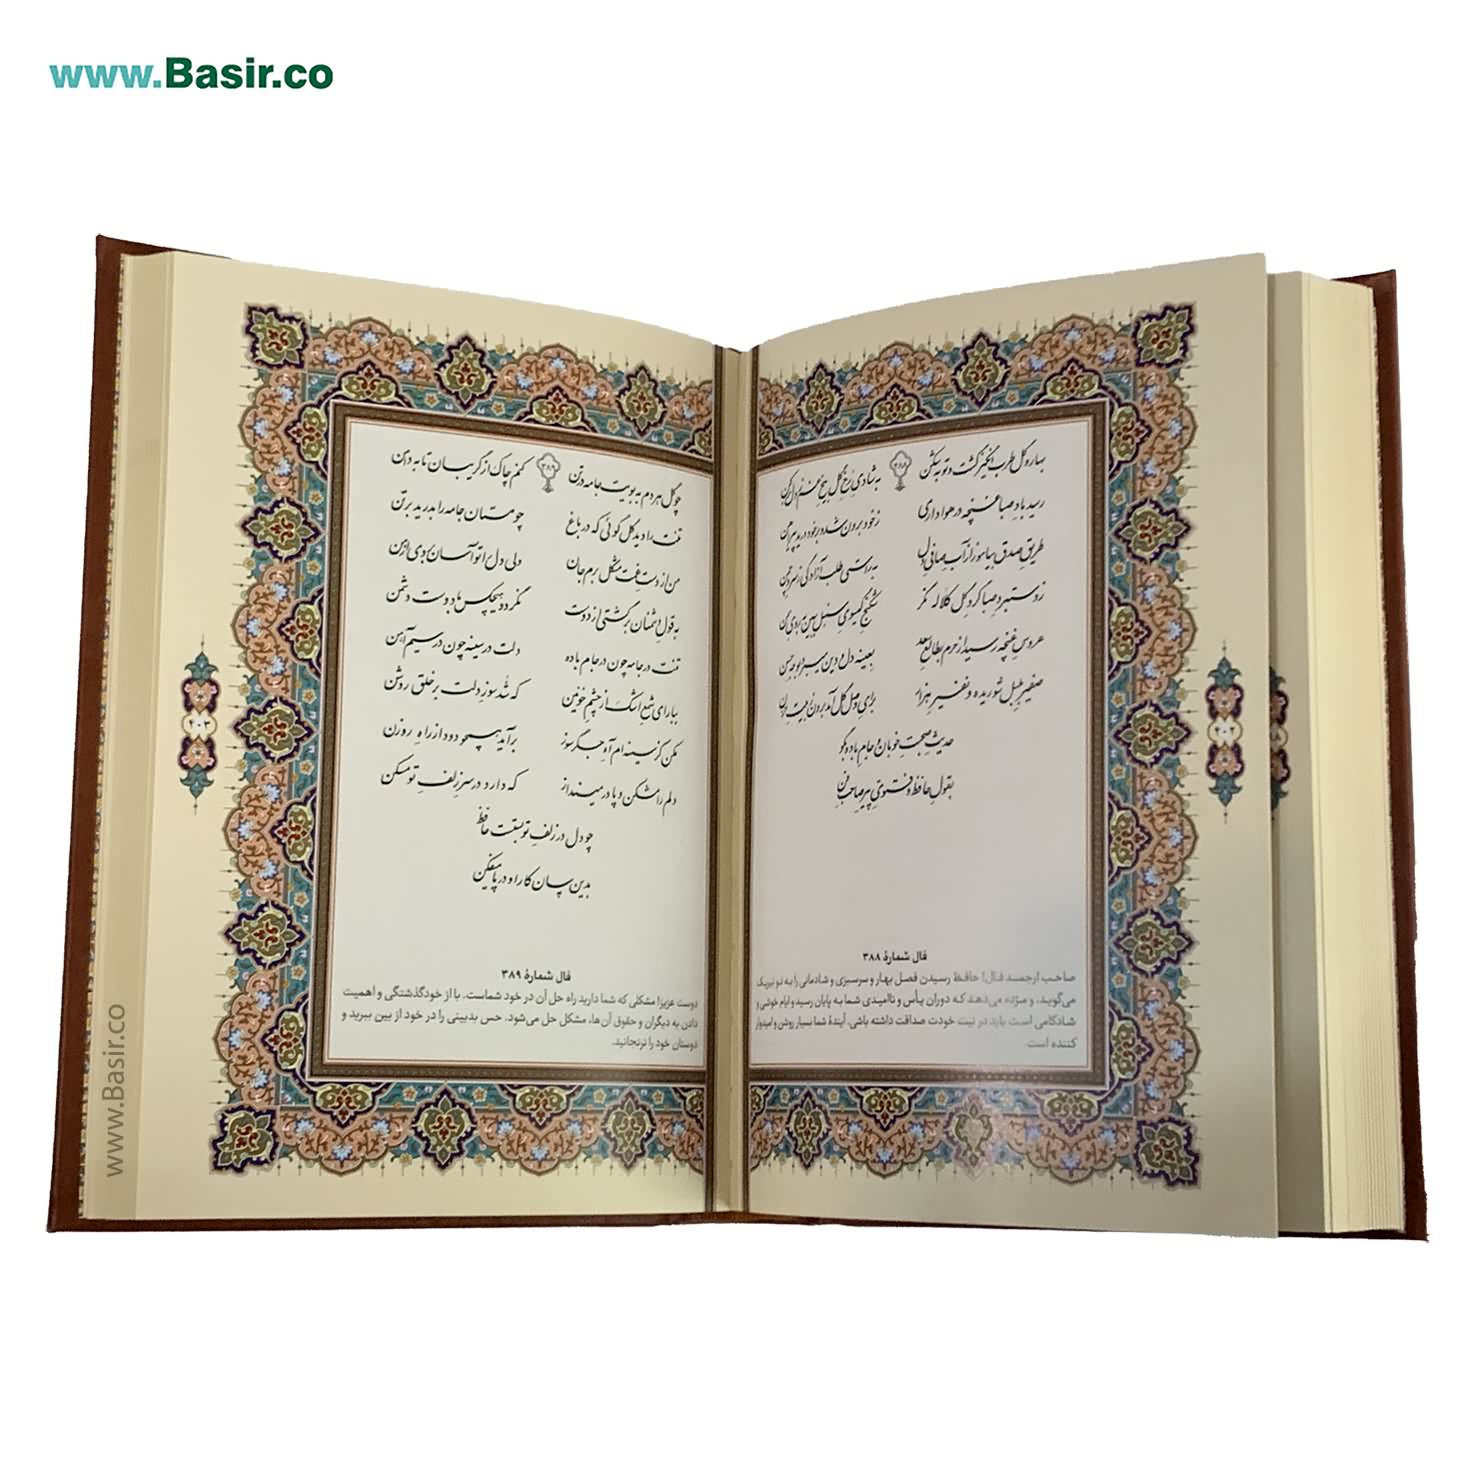 www.Basir.co
۳۸۸
بهار و گل طرب انگیز گشت و توبه شکن
به شادی رخ گل بیخ غم ز دل برکن
رسید باد صبا غنچه در هواداری
ز خود برون شد و بر خود درید پیراهن
طریق صدق بیاموز از آب صافی دل
به راستی طلب آزادگی ز سرو چمن
ز دستبرد صبا گرد گل کلاله نگر
شکنج گیسوی سنبل ببین بروی سمن
عروس غنچه رسید از حرم بطالع سعد
بعینه دل و دین می‌برد بوجه حسن
صفیر بلبل شوریده و نفیر هزار
برای وصل گل آمد برون ز بیت حزن
حدیث صحبت خوبان و جام باده بگو
بقول حافظ و فتوی پیر صاحب فن
فال شمارهٔ ۳۸۸
صاحب ارجمند فال! حافظ رسیدن فصل بهار و سرسبزی و شادمانی را به تو تبریک
می‌گوید، و مژده می‌دهد که دوران یأس و ناامیدی شما به پایان رسید و ایام خوشی و
شادکامی است باید در نیت خودت صداقت داشته باشی. آیندهٔ شما بسیار روشن و امیدوار
کننده است.
۳۸۹
چو گل هر دم به بویت جامه در تن
کنم چاک از گریبان تا به دامن
تنت را دید گل گوئی که در باغ
چو مستان جامه را بدرید بر تن
من از دست غمت مشکل برم جان
ولی دل را تو آسان بردی از من
به قول دشمنان برگشتی از دوست
نگردد هیچکس با دوست دشمن
تنت در جامه چون در جام باده
دلت در سینه چون در سیم آهن
ببار ای شمع اشک از چشم خونین
که شد سوز دلت بر خلق روشن
مکن کز سینه‌ام آه جگرسوز
برآید همچو دود از راه روزن
دلم را مشکن و در پا مینداز
که دارد در سر زلف تو مسکن
چو دل در زلف تو بستست حافظ
بدین سان کار او در پا میفکن
فال شمارهٔ ۳۸۹
دوست عزیز! مشکلی که شما دارید راه حل آن در خود شماست. با از خودگذشتگی و اهمیت
دادن به دیگران و حقوق آن‌ها، مشکل حل می‌شود. حس بدبینی را در خود از بین ببرید و
دوستان خود را نرنجانید.
www.Basir.co